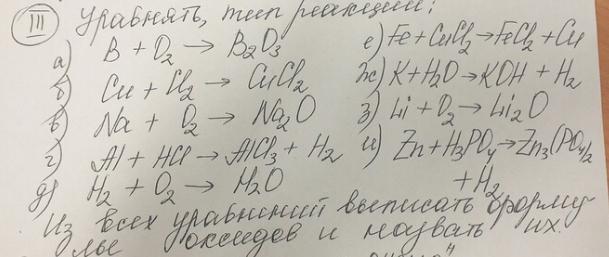 III Уравнять, тип реакции:
а) B + O₂ → B₂O₃
б) Cu + Cl₂ → CuCl₂
в) Na + O₂ → Na₂O
г) Al + HCl → AlCl₃ + H₂
д) H₂ + O₂ → H₂O
е) Fe + CuCl₂ → FeCl₂ + Cu
ж) K + H₂O → KOH + H₂
з) Li + O₂ → Li₂O
и) Zn + H₃PO₄ → Zn₃(PO₄)₂
+ H₂
Из всех уравнений выписать форму
лы оксидов и назвать их.